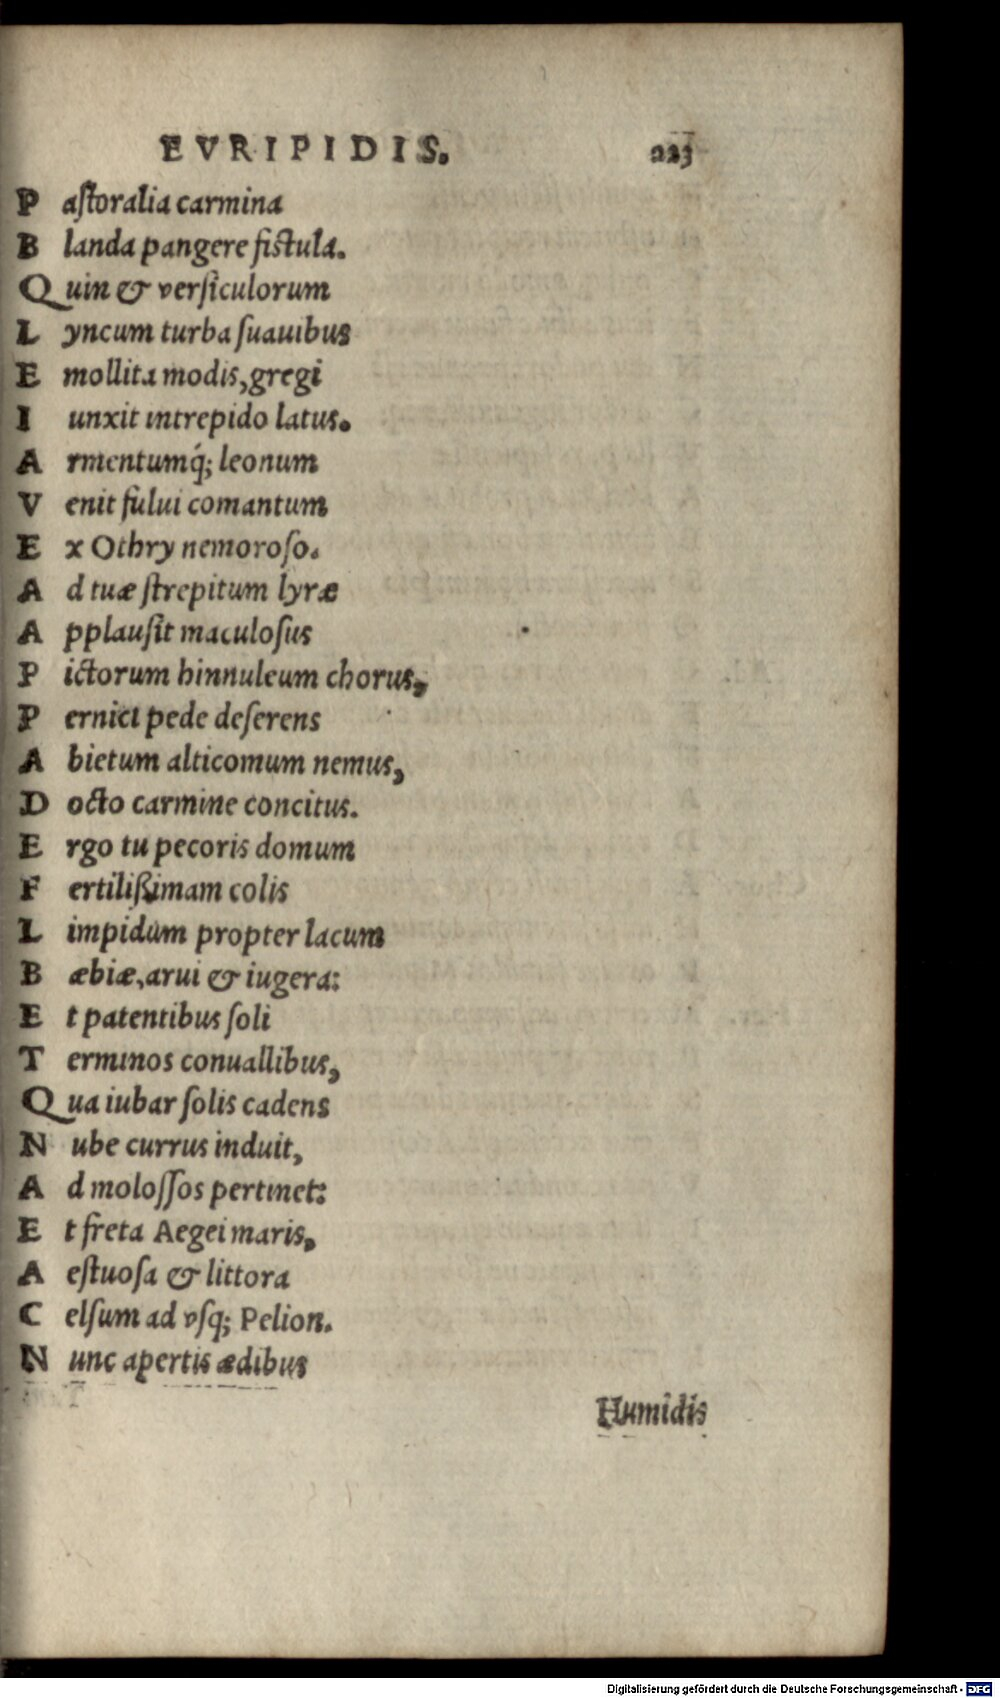 EVRIPIDIS. 223
Pastoralia carmina
Blanda pangere fistula.
Quin & versiculorum
Lyncum turba suauibus
Emollita modis, gregi
Iunxit intrepido latus.
Armentumq́; leonum
Venit fului comantum
Ex Othry nemoroso.
Ad tuæ strepitum lyræ
Applausit maculosus
Pictorum hinnuleum chorus,
Pernici pede deserens
Abietum alticomum nemus,
Docto carmine concitus.
Ergo tu pecoris domum
Fertilißimam colis
Limpidum propter lacum
Bæbiæ, arui & iugera:
Et patentibus soli
Terminos conuallibus,
Qua iubar solis cadens
Nube currus induit,
Ad molossos pertinet:
Et freta Aegei maris,
Aestuosa & littora
Celsum ad vsq; Pelion.
Nunc apertis ædibus
Humidis
Digitalisierung gefördert durch die Deutsche Forschungsgemeinschaft - DFG